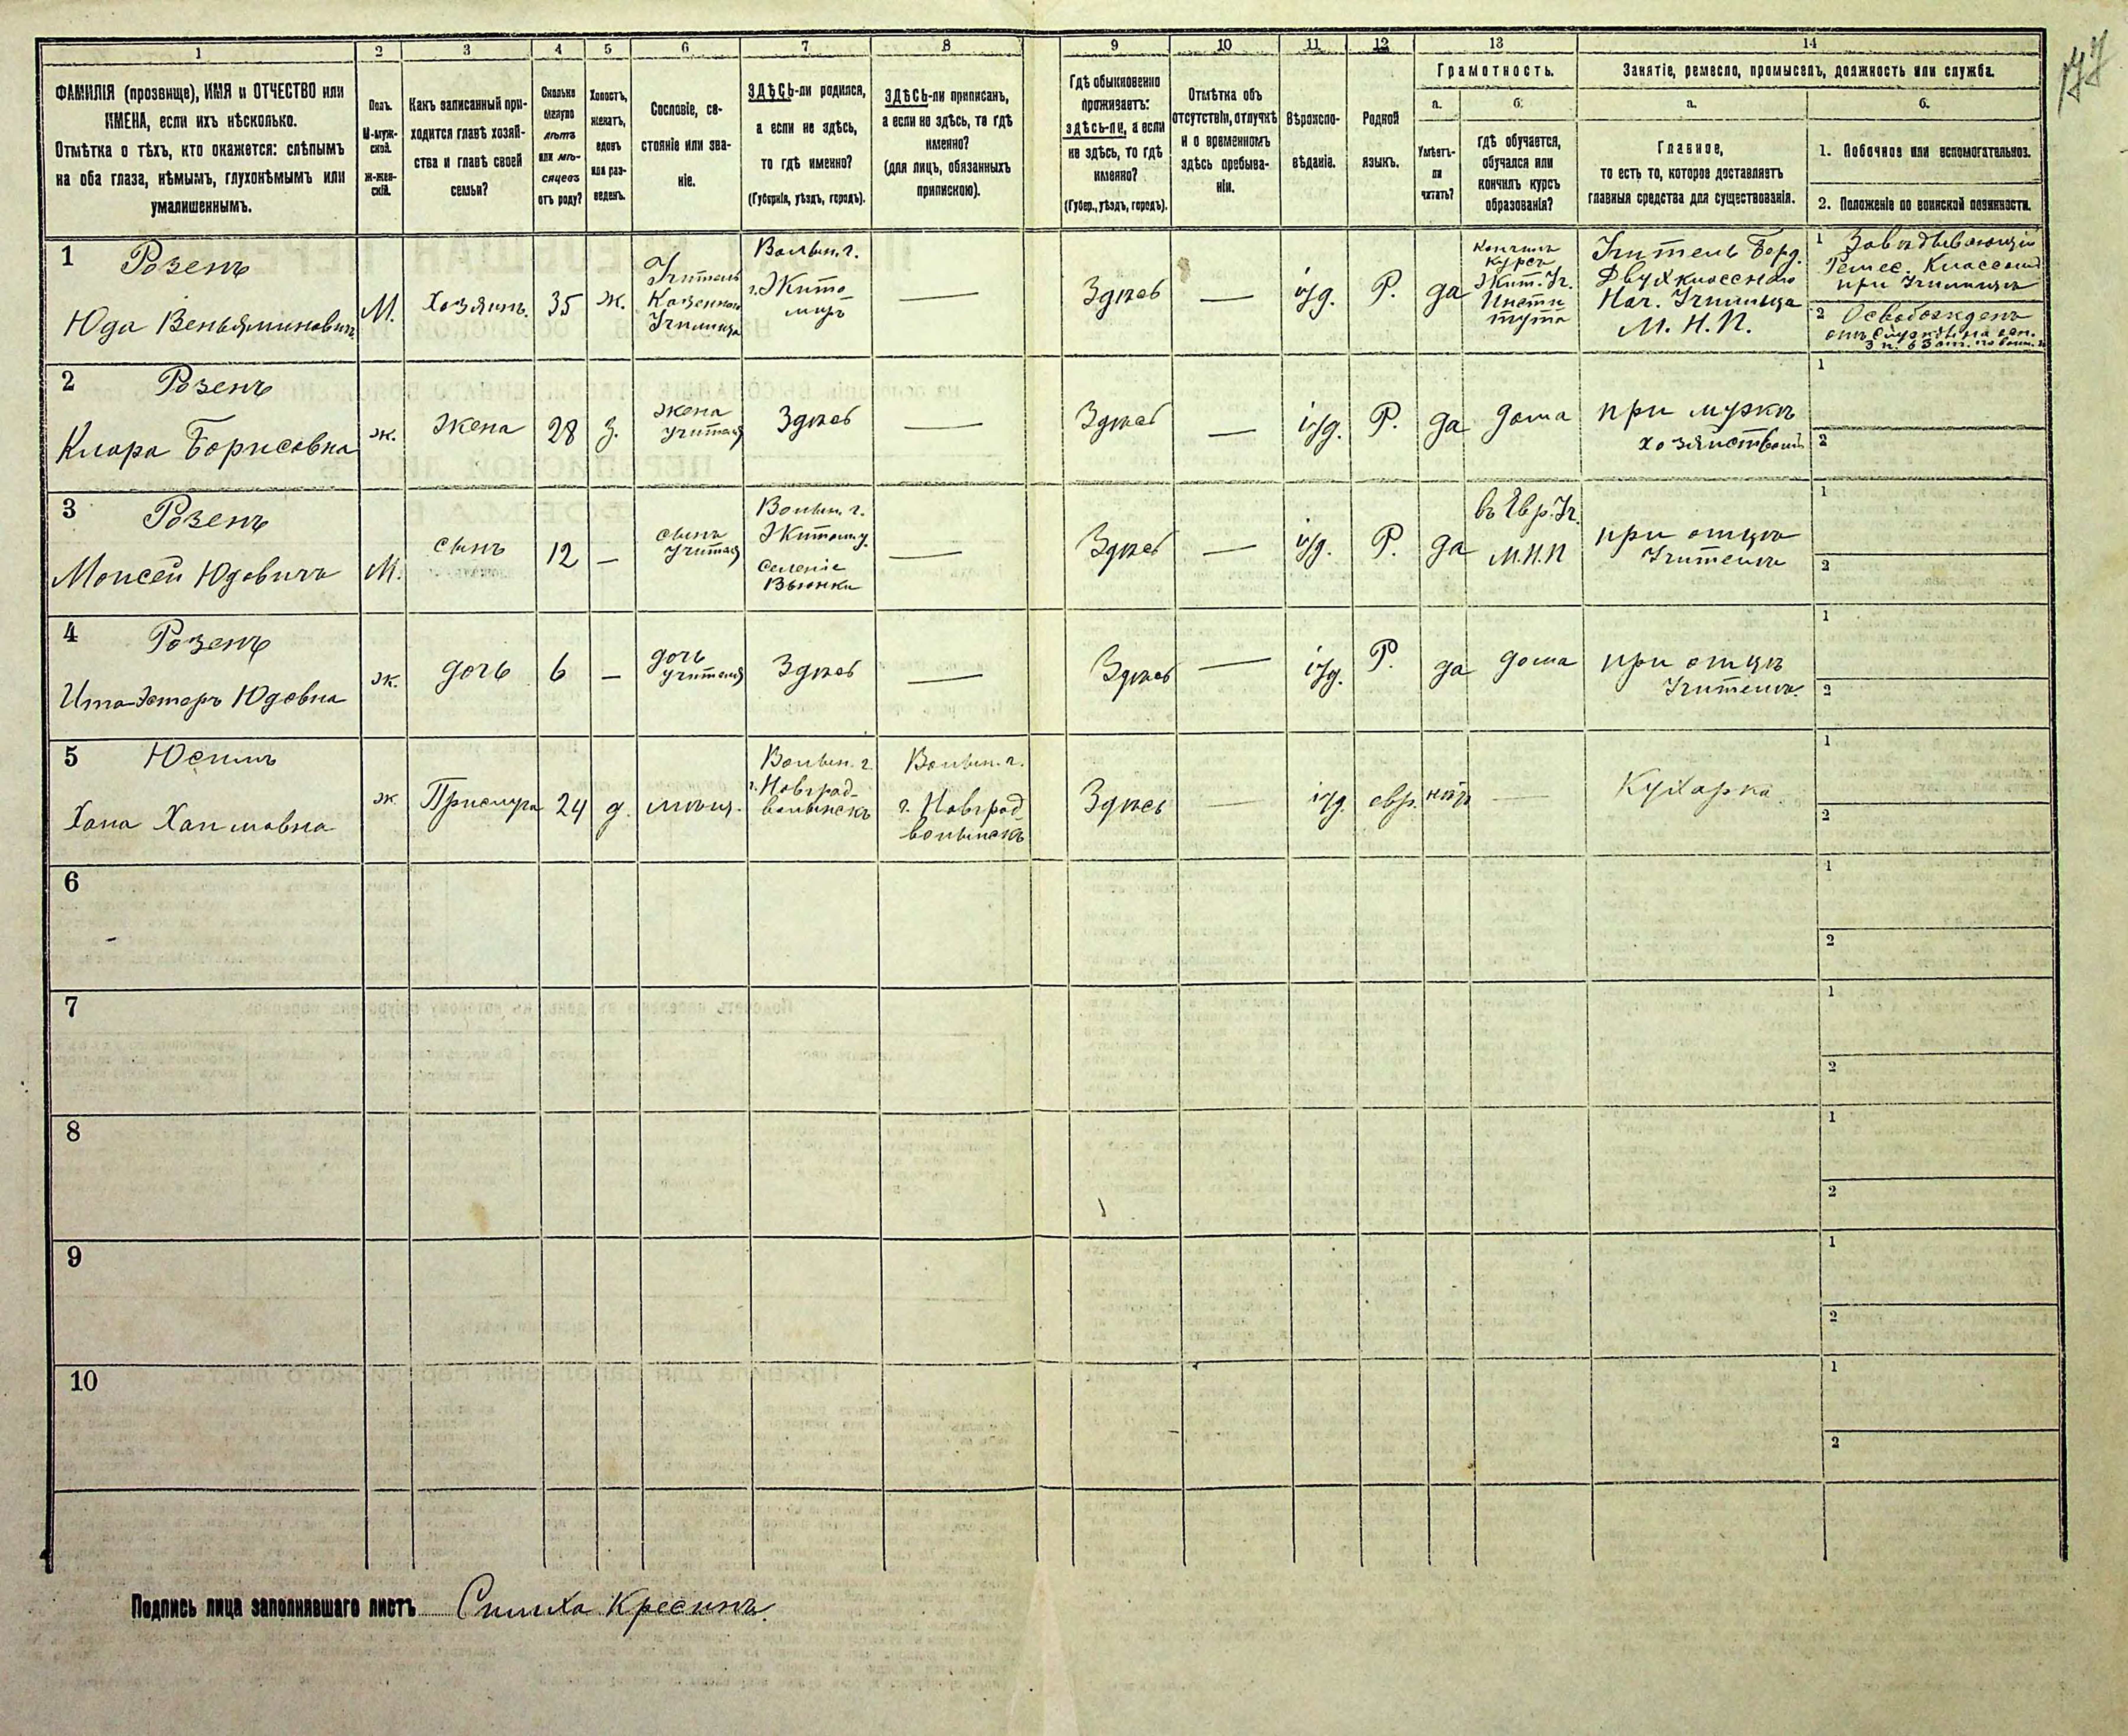 177
1 2 3 4 5 6 7 8 9 10 11 12 13 14
ФАМИЛІЯ (прозвище), ИМЯ и ОТЧЕСТВО или
ИМЕНА, если ихъ нѣсколько.
Отмѣтка о тѣхъ, кто окажется: слѣпымъ
на оба глаза, нѣмымъ, глухонѣмымъ или
умалишеннымъ.
Полъ.
М-муж-
ской.
ж-жен-
скій.
Какъ записанный при-
ходится главѣ хозяй-
ства и главѣ своей
семьи?
Сколько
минуло
лѣтъ
или мѣ-
сяцевъ
отъ роду?
Холостъ,
женатъ,
вдовъ
или раз-
веденъ.
Сословіе, со-
стояніе или зва-
ніе.
ЗДѢСЬ-ли родился,
а если не здѣсь,
то гдѣ именно?
(Губернія, уѣздъ, городъ).
ЗДѢСЬ-ли приписанъ,
а если не здѣсь, то гдѣ
именно?
(для лицъ, обязанныхъ
припискою).
Гдѣ обыкновенно
проживаетъ:
здѣсь-ли, а если
не здѣсь, то гдѣ
именно?
(Губер., уѣздъ, городъ).
Отмѣтка объ
отсутствіи, отлучкѣ
и о временномъ
здѣсь пребыва-
ніи.
Вѣроиспо-
вѣданіе.
Родной
языкъ.
Грамотность.
а.
Умѣетъ-
ли
читать?
б.
гдѣ обучается,
обучался или
кончилъ курсъ
образованія?
Занятіе, ремесло, промыселъ, должность или служба.
а.
Главное,
то есть то, которое доставляетъ
главныя средства для существованія.
б.
1. Побочное или вспомогательное.
2. Положеніе по воинской повинности.
1 Розенъ
Юда Веньяминовичъ
М.
Хозяинъ
35
ж.
Учитель
Казеннаго
Училища
Волын. г.
г. Жито
миръ
—
Здѣсь
—
іуд.
Р.
да
Кончилъ
курсъ
Жит. Уч.
Инсти
тута
Учитель Берд.
Двухкласснаго
Нач. Училища
М. Н. П.
1 Завѣдывающій
Ремес. Классомъ
при Училищѣ
2 Освобожденъ
2 Розенъ
Клара Борисовна
ж.
жена
28
з.
жена
учителя
Здѣсь
—
Здѣсь
—
іуд.
Р.
да
дома
при мужѣ
1
2
3 Розенъ
Моисей Юдовичъ
М.
сынъ
12
—
сынъ
учителя
Волын. г.
Житом. у.
Селеніе
Вьюнки
—
Здѣсь
—
іуд.
Р.
да
въ Евр. Уч.
М.Н.П
при отцѣ
Учителѣ
1
2
4 Розенъ
Ита-Эстеръ Юдовна
ж.
дочь
6
—
дочь
учителя
Здѣсь
—
Здѣсь
—
іуд.
Р.
да
дома
при отцѣ
Учителѣ.
1
2
5
Хана Хаимовна
ж
Прислуга
24
д.
мѣщ.
Волын. г.
г. Новград-
волынскъ
Волын. г.
г. Новград
волынскъ
Здѣсь
—
іуд.
евр.
нѣт
—
Кухарка
1
2
6
1
2
7
1
2
8
1
2
9
1
2
10
1
2
Подпись лица заполнявшаго листъ Симха Кресинъ.